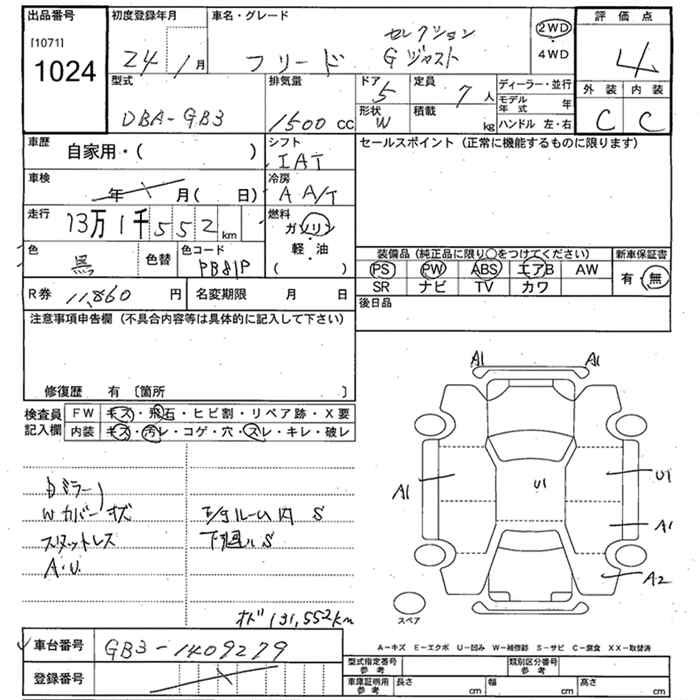 出品番号 初度登録年月 車名・グレード 評価点
[1071]
1024
24年 1月 フリード セレクション
Gジャスト
2WD
4WD
4
型式 排気量 ドア 定員 ディーラー・並行 外装 内装
DBA-GB3 1500 CC 5 7人 モデル年式 年 C C
形状 積載 ハンドル 左・右
W kg
車歴 シフト セールスポイント (正常に機能するものに限ります)
自家用・( ) IAT
車検 冷房
年 月( 日) A A/T
走行 燃料
13万1千552km ガソリン
軽・油
( )
色 色替 色コード
黒 PB81P
装備品 (純正品に限り○をつけてください) 新車保証書
PS PW ABS エアB AW 有・無
SR ナビ TV カワ
R券 11,860 円 名変期限 月 日 後日品
注意事項申告欄 (不具合内容等は具体的に記入して下さい)
修復歴 有 〔箇所 〕
検査員 FW キズ・飛石・ヒビ割・リペア跡・X要
記入欄 内装 キズ・汚レ・コゲ・穴・スレ・キレ・破レ
A1 A1
A1 U1 U1
A1
A2
ミラー
Wカバー キズ ルーム内 S
スタットレス 下廻ル S
A・U
オド 131,552km
スペア
A-キズ E-エクボ U-凹み W-補修跡 S-サビ C-腐食 XX-取替済
車台番号 GB3-1409279
登録番号
型式指定番号 参考 類別区分番号 参考
車庫証明用 参考 長さ cm 幅 cm 高さ cm